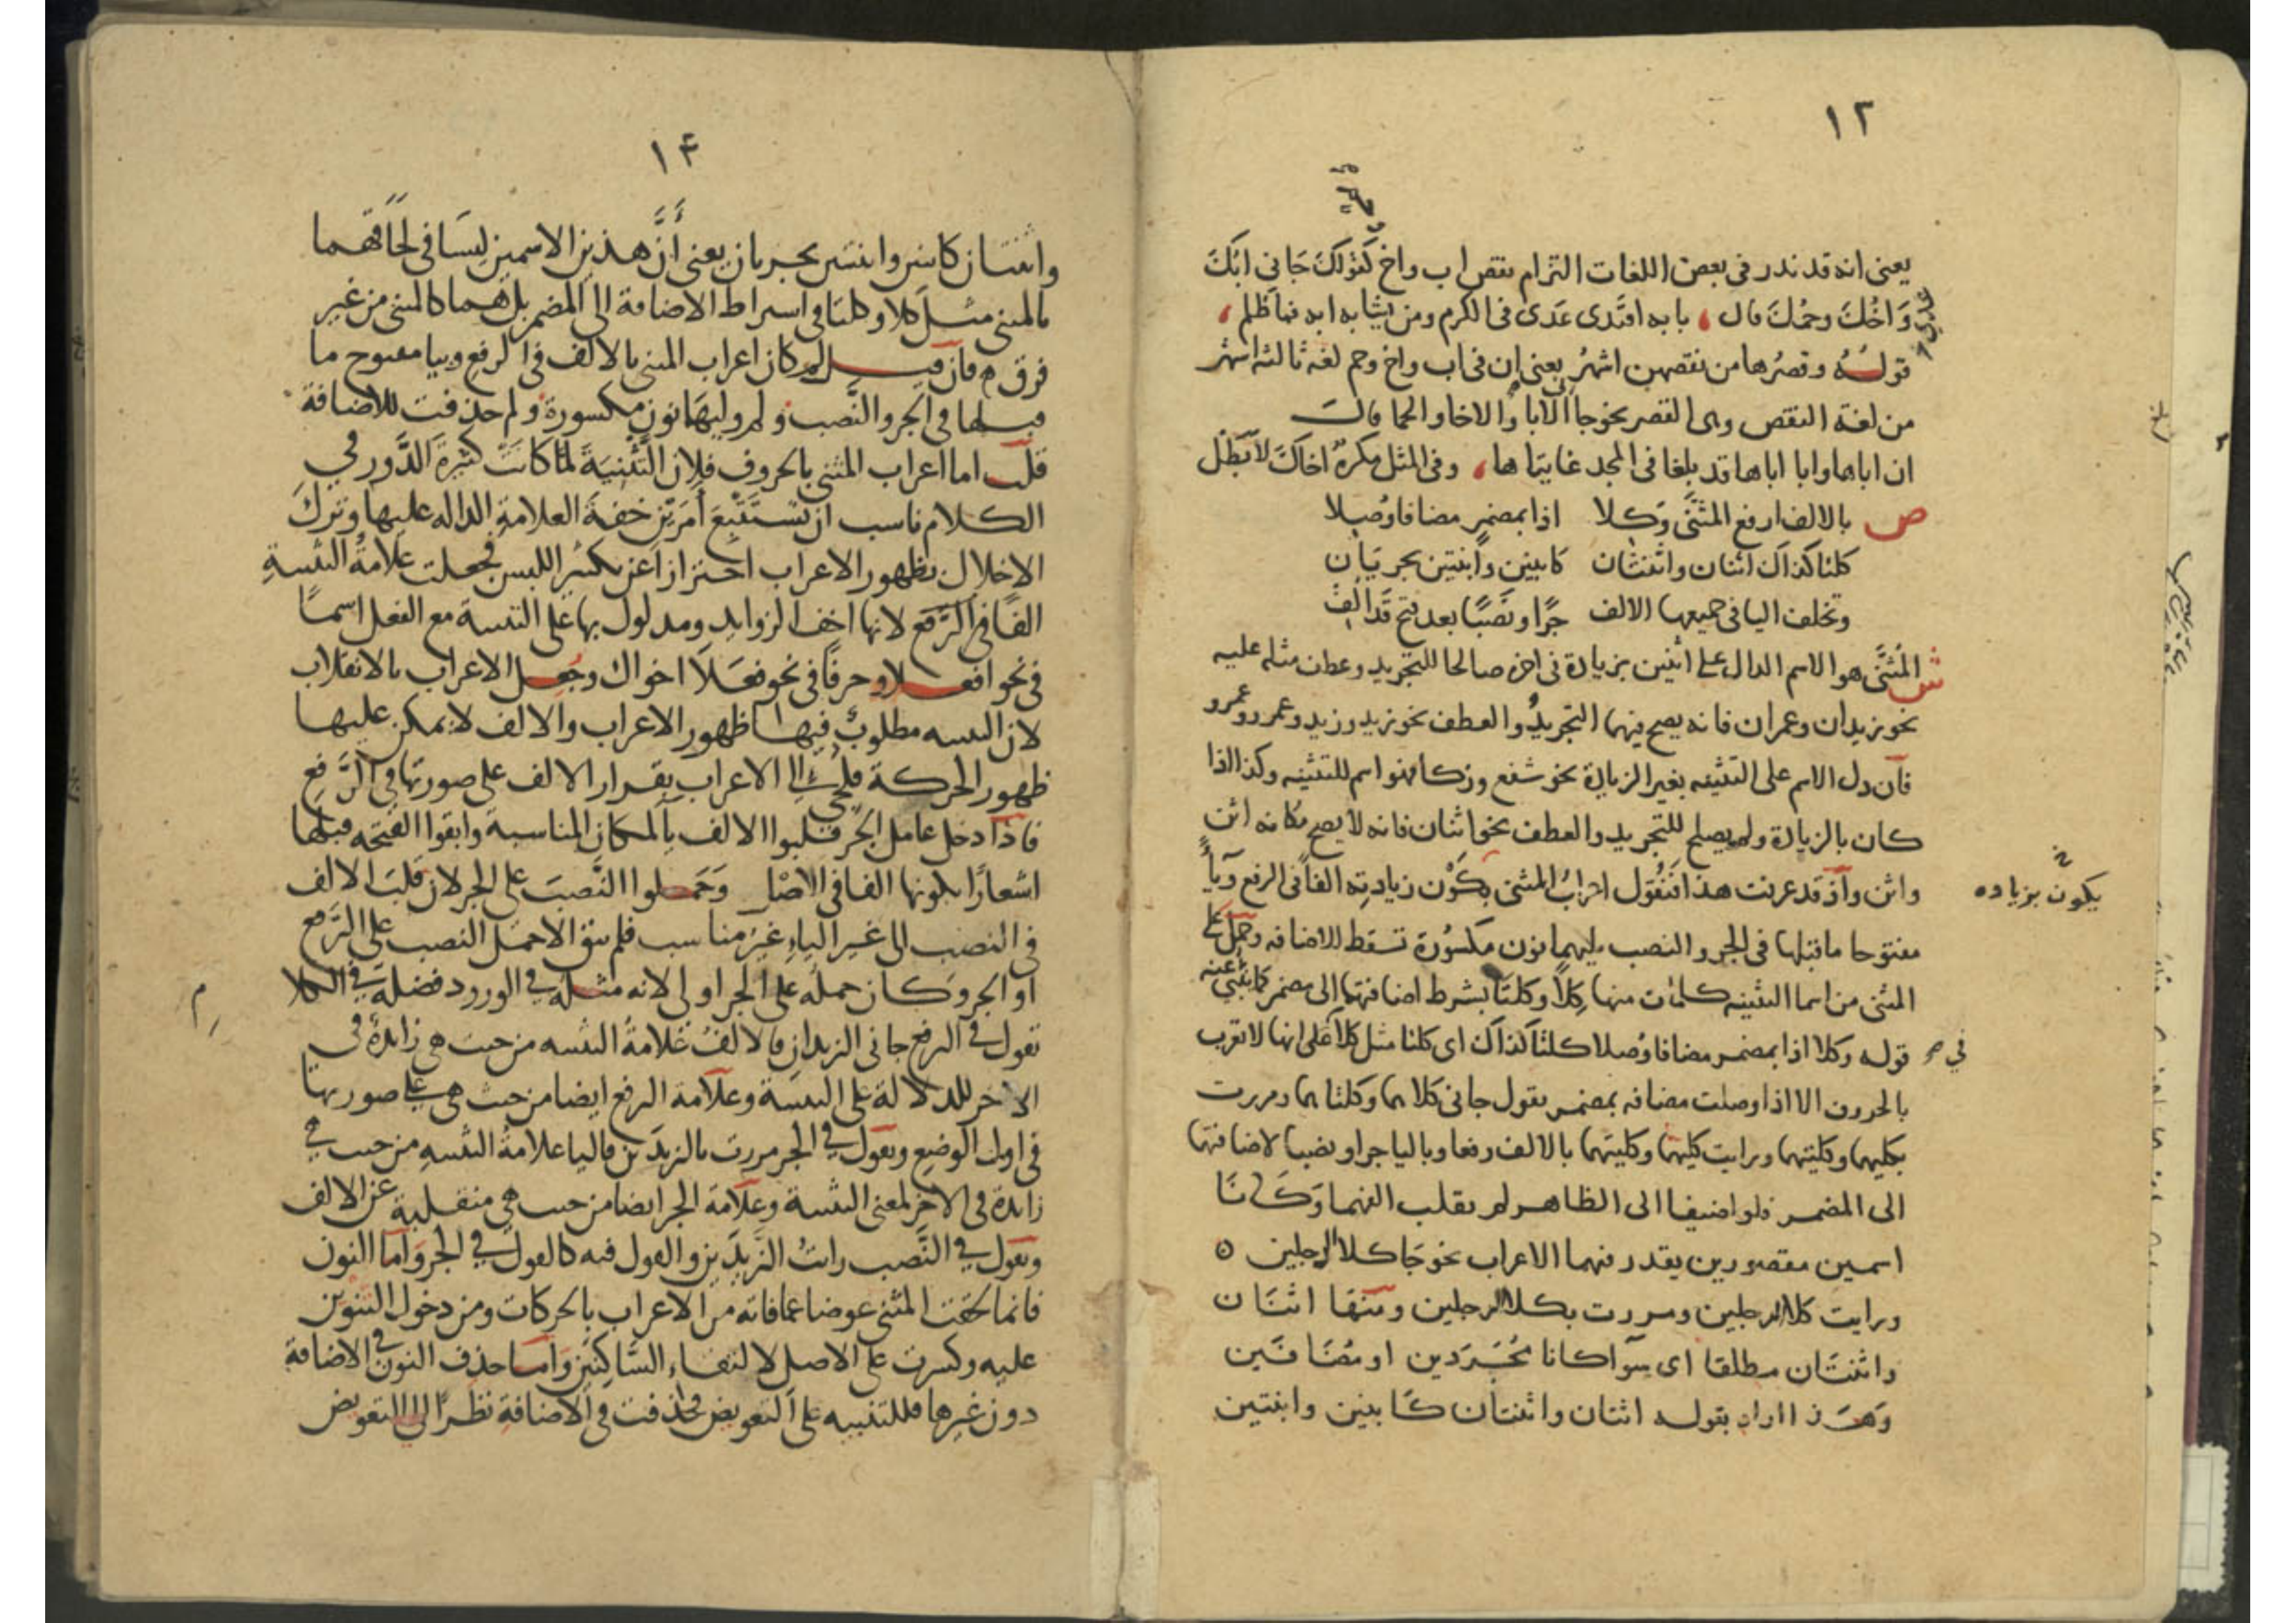 ١٢
يعني انه قد ندر في بعض اللغات التزام نقص اب واخ كقولك جاني ابك
واخك وحمك قال بابه اقتدى عدى في الكرم ومن يشابه ابه فما ظلم
عدي
قوله وقصرها من نقصهن اشهر يعني ان في اب واخ وحم لغة ثالثه اشهر
من لغة النقص وهى القصر نحو جاالابا والاخا والحما قال
ان اباها وابا اباها قد بلغا في المجد غايتاها وفي المثل مكره اخاك لابطل
ص بالالف ارفع المثنى وكلا اذا بمضمر مضافا وصلا
كلتا كذاك اثنان واثنتان كابنين وابنتين يجريان
وتخلف اليا في جميعها الالف جرا ونصبا بعد فتح قد الف
ش المثنى هو الاسم الدال على اثنين بزيادة في اخره صالحا للتجريد وعطف مثله عليه
نحو زيدان وعمران فانه يصح فيهما التجريد والعطف نحو زيد وزيد وعمرو وعمرو
فان دل الاسم على التثنيه بغير الزيادة نحو شفع وزكا فهو اسم للتثنيه وكذا اذا
كان بالزيادة ولم يصلح للتجريد والعطف نحو اثنان فانه لا يصح مكانه اثن
واثن واذ قد عرفت هذا فنقول اعراب المثنى بكون زيادته الفا في الرفع ويآ
يكون بزياده
مفتوحا ماقبلها في الجر والنصب يليهما نون مكسورة تسقط للاضافه وحمل على
المثنى من اسما التثنيه كلمات منها كلا وكلتا بشرط اضافتهما الى مضمر كما ينبي عنه
قوله وكلا اذا بمضمر مضافا وصلا كلتا كذاك اى كلتا مثل كلا في انها لا تعرب
في
بالحروف الا اذا وصلت مضافه بمضمر يقول جاني كلاهما وكلتاهما ومررت
بكليهما وكلتيهما ورايت كليهما وكلتيهما بالالف رفعا وباليا جرا ونصبا لاضافتهما
الى المضمر فلو اضيفا الى الظاهر لم يقلب الفهما وكانا
اسمين مقصورين يقدر فيهما الاعراب نحو جا كلا الرجلين
ورايت كلا الرجلين ومررت بكلا الرجلين ومنها اثنان
واثنتان مطلقا اى سوآ كانا مجردين او مضافين
وهذا اراد بقوله اثنان واثنتان كابنين وابنتين
١٤
واثنتان كابنين وابنتين يجريان يعني أنّ هذين الاسمين ليسا في لحاقهما
بالمثنى مثل كلا وكلتا في اشتراط الاضافة الى المضمر بل هما كالمثنى من غير
فرق فان قيل لم كان اعراب المثنى بالالف في الرفع وبيا مفتوح ما
قبلها في الجر والنصب ولم وليها نون مكسورة ولم حذفت للاضافة
قلت اما اعراب المثنى بالحروف فلان التثنية لما كانت كثيرة الدور في
الكلام ناسب ان تستتبع أمرين خفة العلامة الداله عليها وترك
الاخلال بظهور الاعراب احترازا عن تكثير اللبس فجعلت علامة التثنية
الفا في الرفع لانها اخف الزوايد ومدلول بها على التثنية مع الفعل اسما
في نحو افعلا وحرفا في نحو فعلا اخواك وجعل الاعراب بالانقلاب
لان التثنيه مطلوب فيها ظهور الاعراب والالف لا يمكن عليها
ظهور الحركة فلجئ الى الاعراب بقرار الالف على صورتها في الرفع
فاذا دخل عامل الجر قلبوا الالف بالمكان المناسبة وابقوا الفتحه قبلها
اشعارا بكونها الفا في الاصل وحملوا النصب على الجر لان قلب الالف
في النصب الى غير الياء غير مناسب فلم يبق الاحمل النصب على الرفع
او الجر وكان حمله على الجر اولى لانه مثله في الورود فضلة في الكلا
م
تقول في الرفع جاني الزيدان فالالف علامة التثنيه من حيث هي زايدة في
الاخر للدلالة على التثنية وعلامة الرفع ايضا من حيث هي على صورتها
في اول الوضع وتقول في الجر مررت بالزيدين فاليا علامة التثنيه من حيث هي
زايدة في الاخر لمعنى التثنية وعلامة الجر ايضا من حيث هي منقلبة عن الالف
وتقول في النصب رايت الزيدين والقول فيه كالقول في الجر واما النون
فانما لحقت المثنى عوضا عما فاته من الاعراب بالحركات ومن دخول التنوين
عليه وكسرت على الاصل لالتقاء الساكنين واما حذف النون في الاضافة
دون غيرها فللتنبيه على التعويض فحذفت في الاضافة نظرا الى التعويض